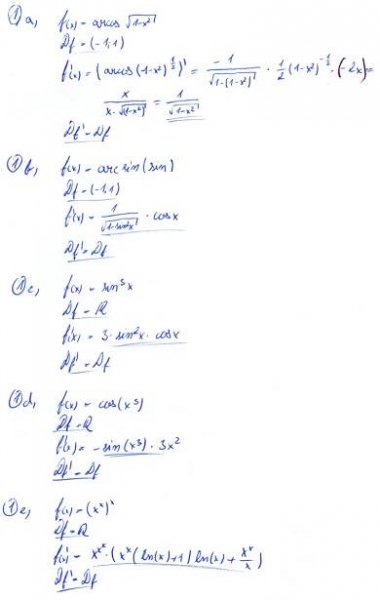 ① a, f(x) = arccos √(1-x²)
Df = (-1,1)
f'(x) = (arccos (1-x²)^(1/2))' = -1/√(1-(1-x²)) · 1/2 (1-x²)^(-1/2) · (-2x) =
x/(x·√(1-x²)) = 1/√(1-x²)
Df' = Df
① b, f(x) = arcsin(sin)
Df = (-1,1)
f'(x) = 1/√(1-sin²x) · cosx
Df' = Df
① c, f(x) = sin³x
Df = R
f'(x) = 3·sin²x·cosx
Df' = Df
① d, f(x) = cos(x³)
Df = R
f'(x) = -sin(x³)·3x²
Df' = Df
① e, f(x) = (xˣ)ˣ
Df = R
f(x)' = x^(x^x) · (xˣ(ln(x)+1) ln(x) + xˣ/x)
Df' = Df